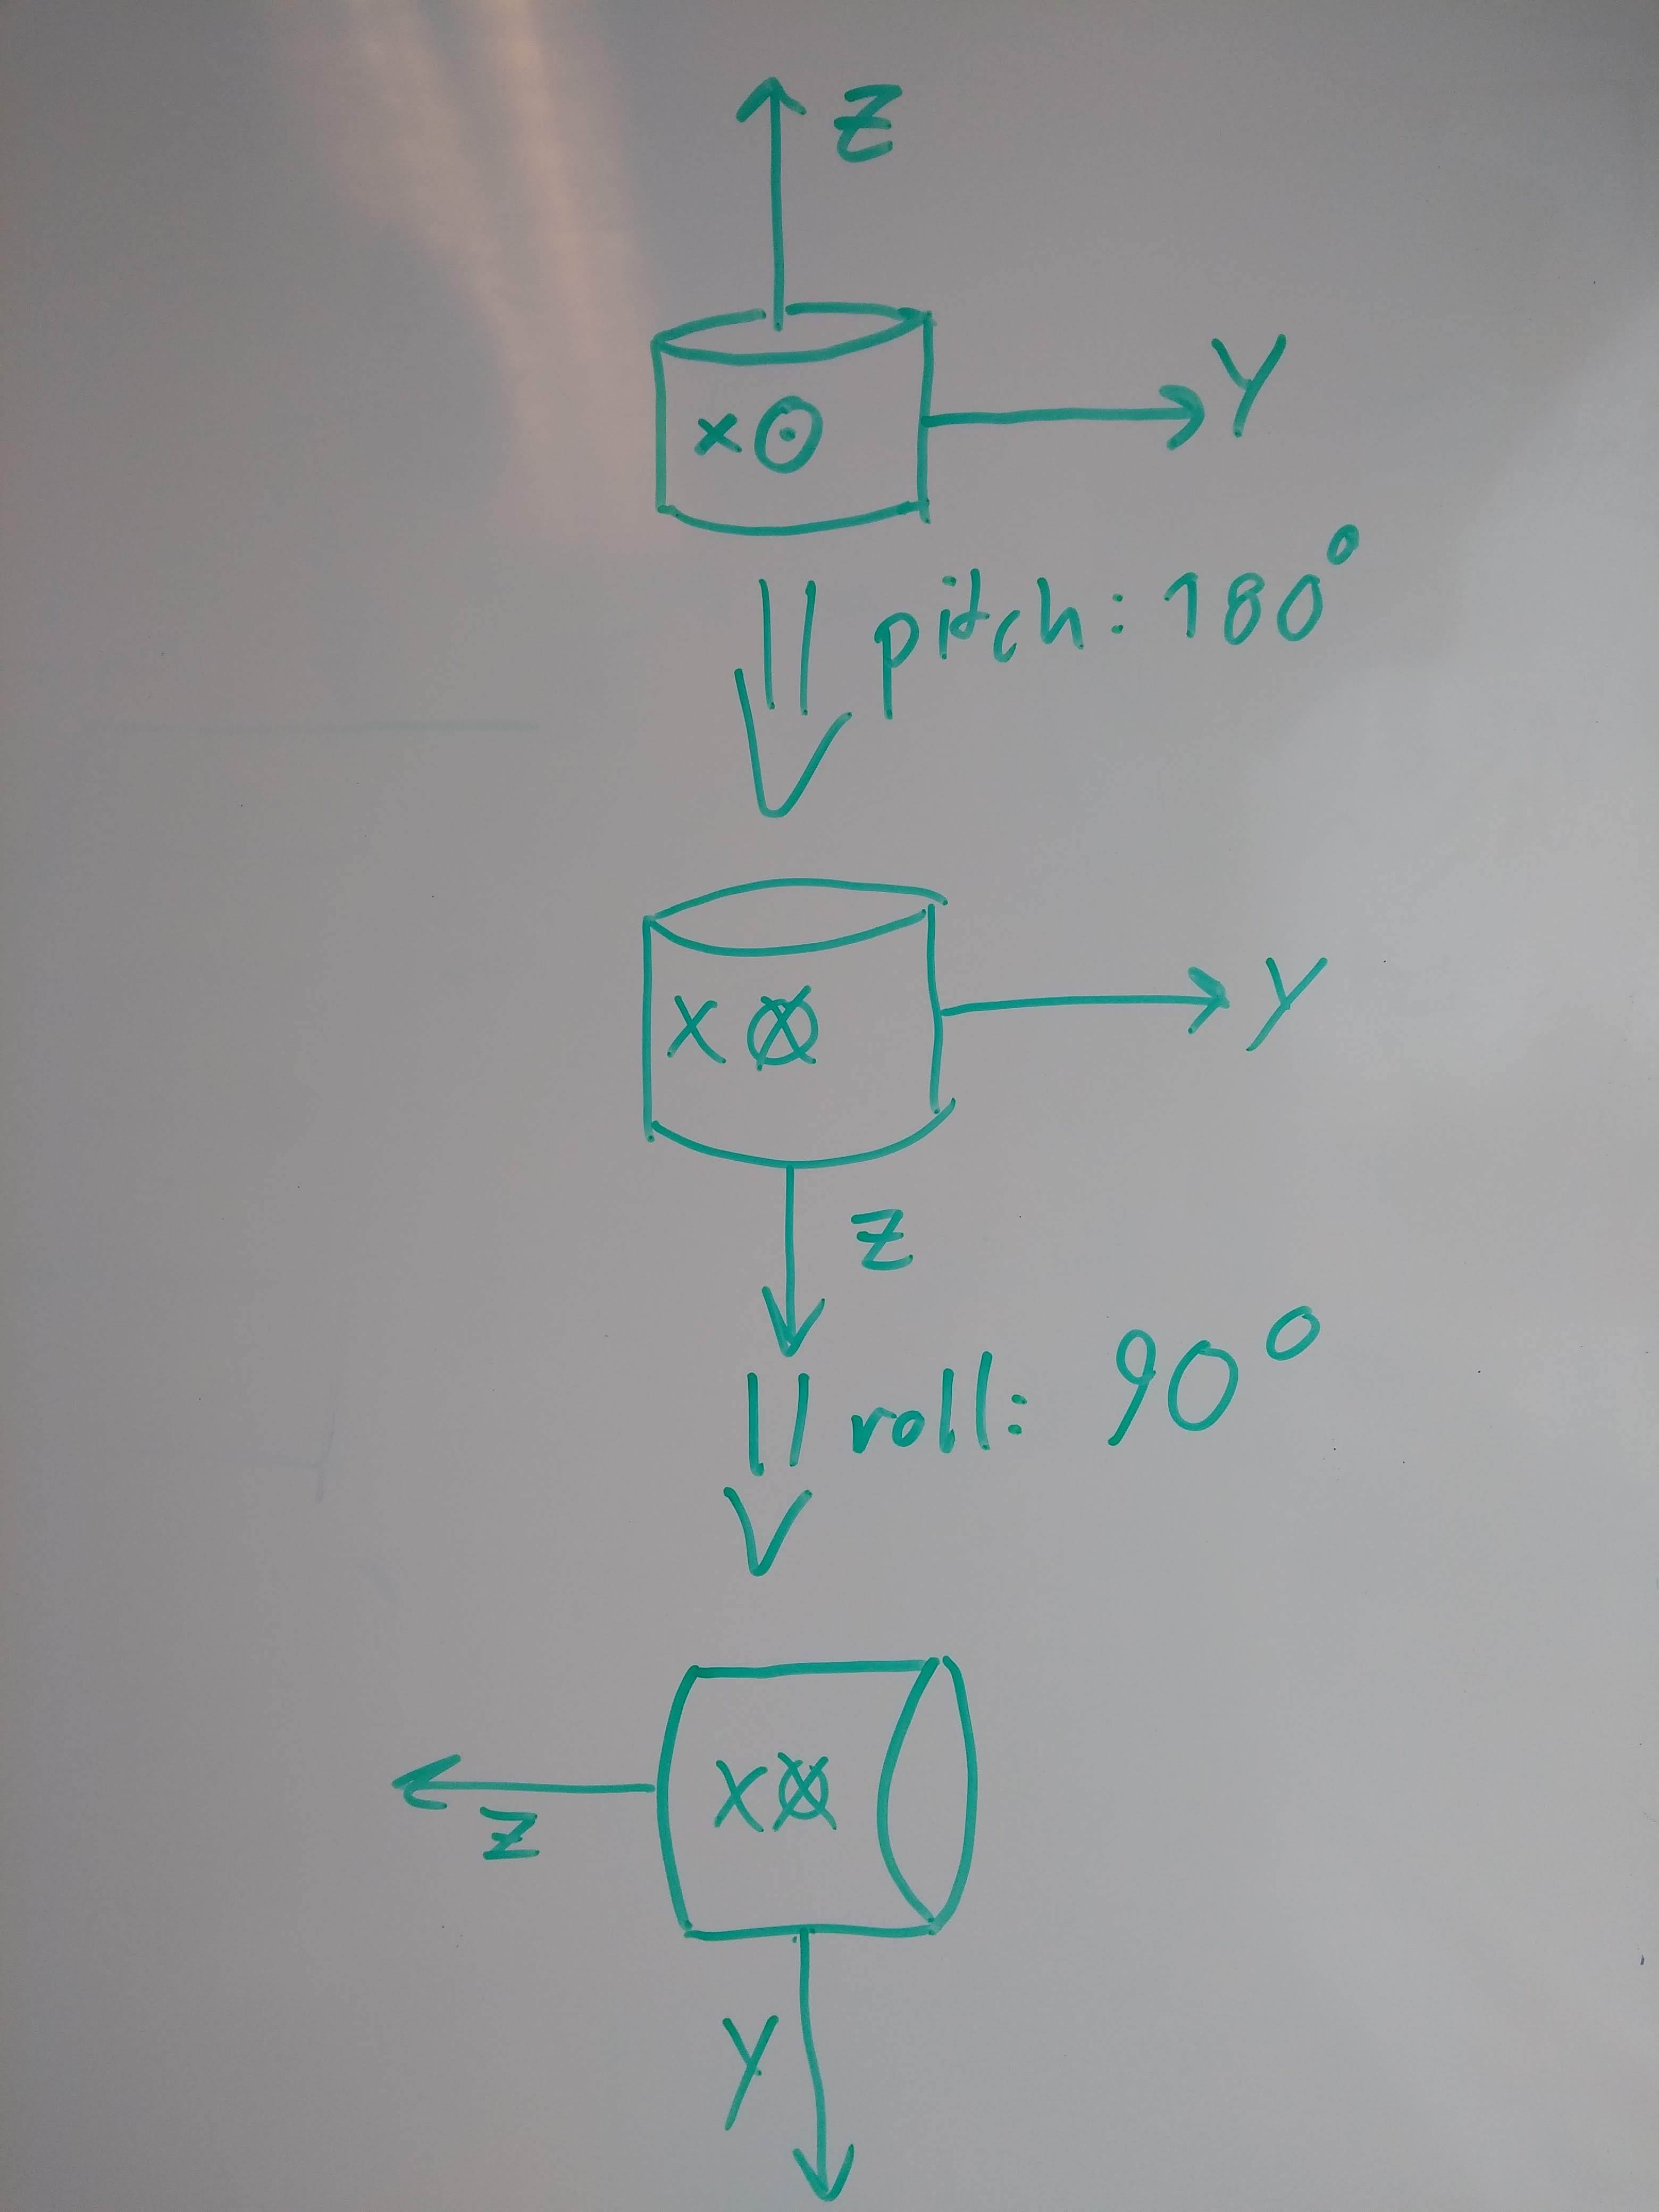 Z
Y
x
pitch: 180°
Y
X
Z
roll: 90°
X
Z
Y